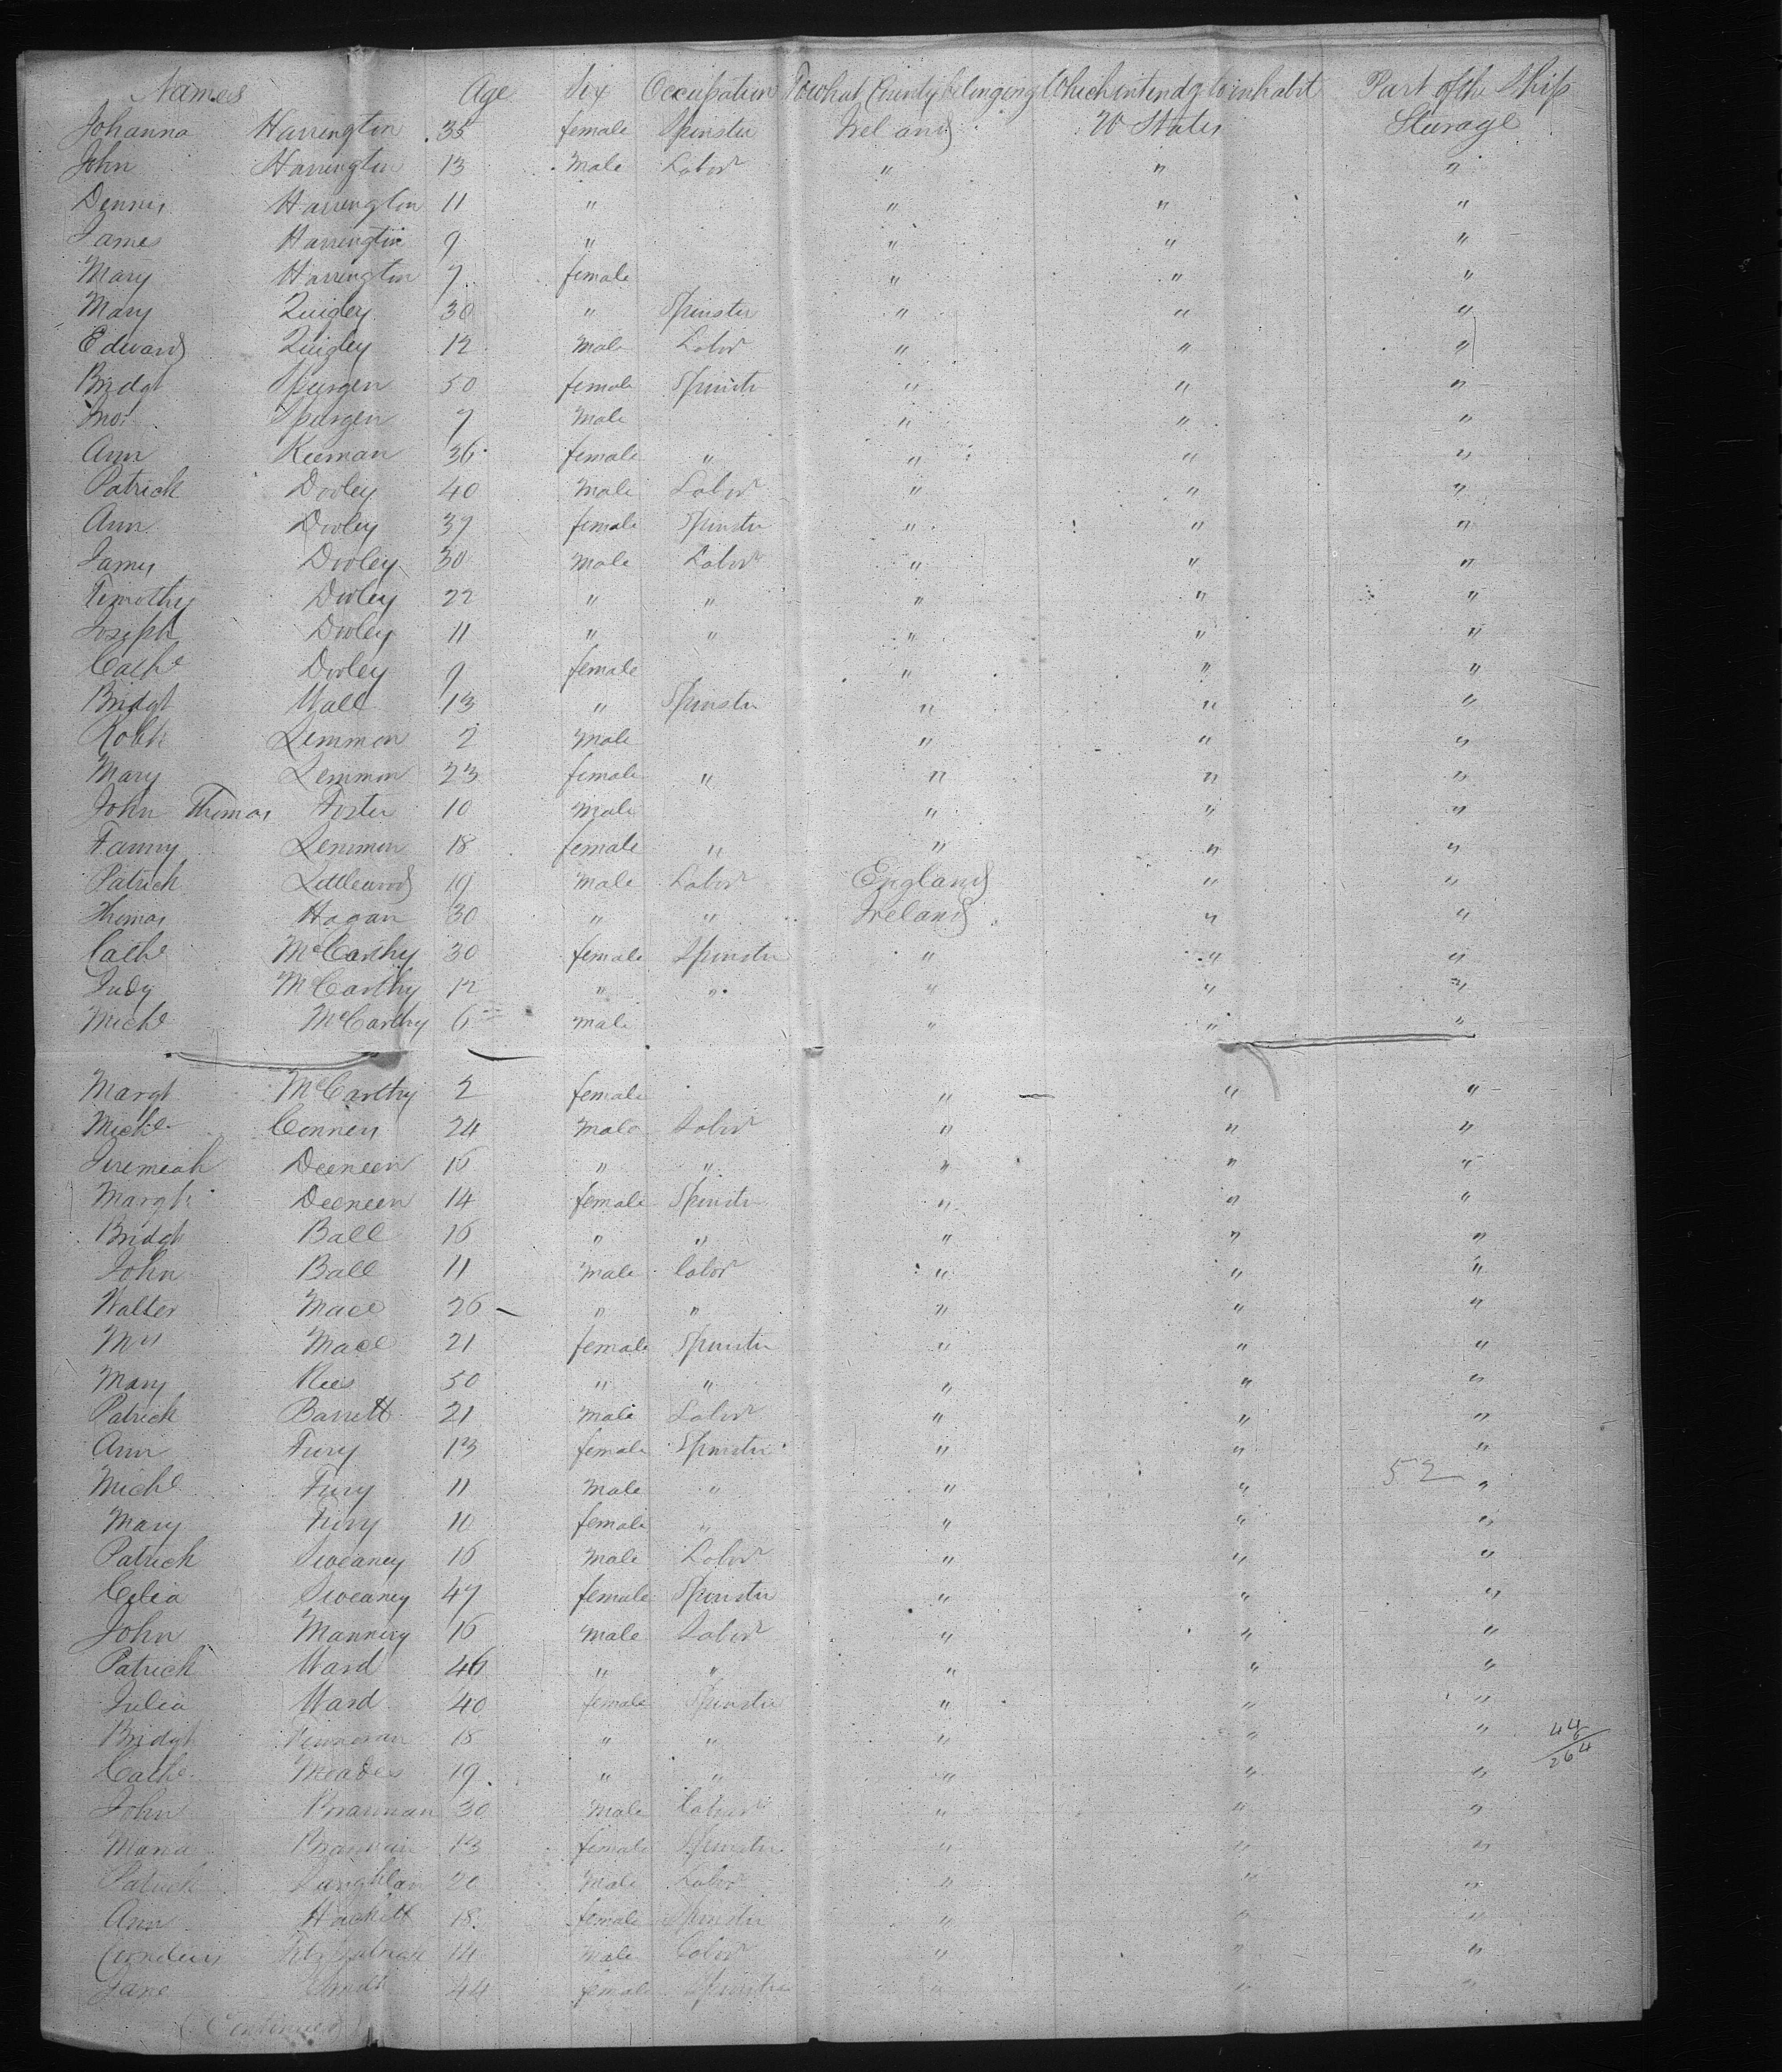 Names Age Sex Occupation To what County belonging Which intendg to inhabit Part of the Ship
Johanna Harrington 35 female Spinster Ireland U States Steerage
John Harrington 13 Male Labor " " "
Dennis Harrington 11 " " " "
James Harrington 9 " " " "
Mary Harrington 7 female " " "
Mary Quigley 30 " Spinster " " "
Edward Quigley 12 Male Labor " " "
Bridgt Spurgen 50 female Spinster " " "
Spurgen 7 Male " " "
Ann Keernan 36 female " " " "
Patrick Dooley 40 Male Labor " " "
Ann Dooley 37 female Spinster " " "
James Dooley 30 Male Labor " " "
Timothy Dooley 22 " " " " "
Joseph Dooley 11 " " " " "
Cathe Dooley 9 female " " "
Bridgt Wall 13 " Spinster " " "
Robt Lemmon 2 Male " " "
Mary Lemmon 23 female " " " "
John Thomas Foster 10 Male " " "
Fanny Lemmon 18 female " " " "
Patrick Littlewood 19 Male Labor England " "
Thomas Hagan 30 " " Ireland " "
Cathe McCarthy 30 female Spinster " " "
Judy McCarthy 12 " " " " "
Michl McCarthy 6 Male " " "
Margt McCarthy 2 female " " "
Michl Conners 24 Male Labor " " "
Jeremiah Deeneen 16 " " " " "
Margt Deeneen 14 female Spinster " " "
Bridgt Ball 16 " " " " "
John Ball 11 Male labor " " "
Walter Mace 26 " " " " "
Mrs Mace 21 female Spinster " " "
Mary Rees 50 " " " " "
Patrick Barrett 21 Male Labor " " "
Ann Fury 13 female Spinster " " "
Michl Fury 11 Male " " " 52 "
Mary Fury 10 female " " " "
Patrick Sweaney 16 Male Labor " " "
Celia Sweaney 47 female Spinster " " "
John Mannery 16 Male Labor " " "
Patrick Ward 46 " " " " "
Julia Ward 40 female Spinster " " "
Bridgt 18 " " " " " 44
Cathe Meades 19 " " " " " 264
John Brannan 30 Male labor " " "
Maria Brannan 13 female Spinster " " "
Patrick Laughlan 20 Male Labor " " "
Ann Hackett 18 female Spinster " " "
Cornelius Fitzpatrick 14 Male labor " " "
Jane Smith 44 female Spinster " " "
(Continued)